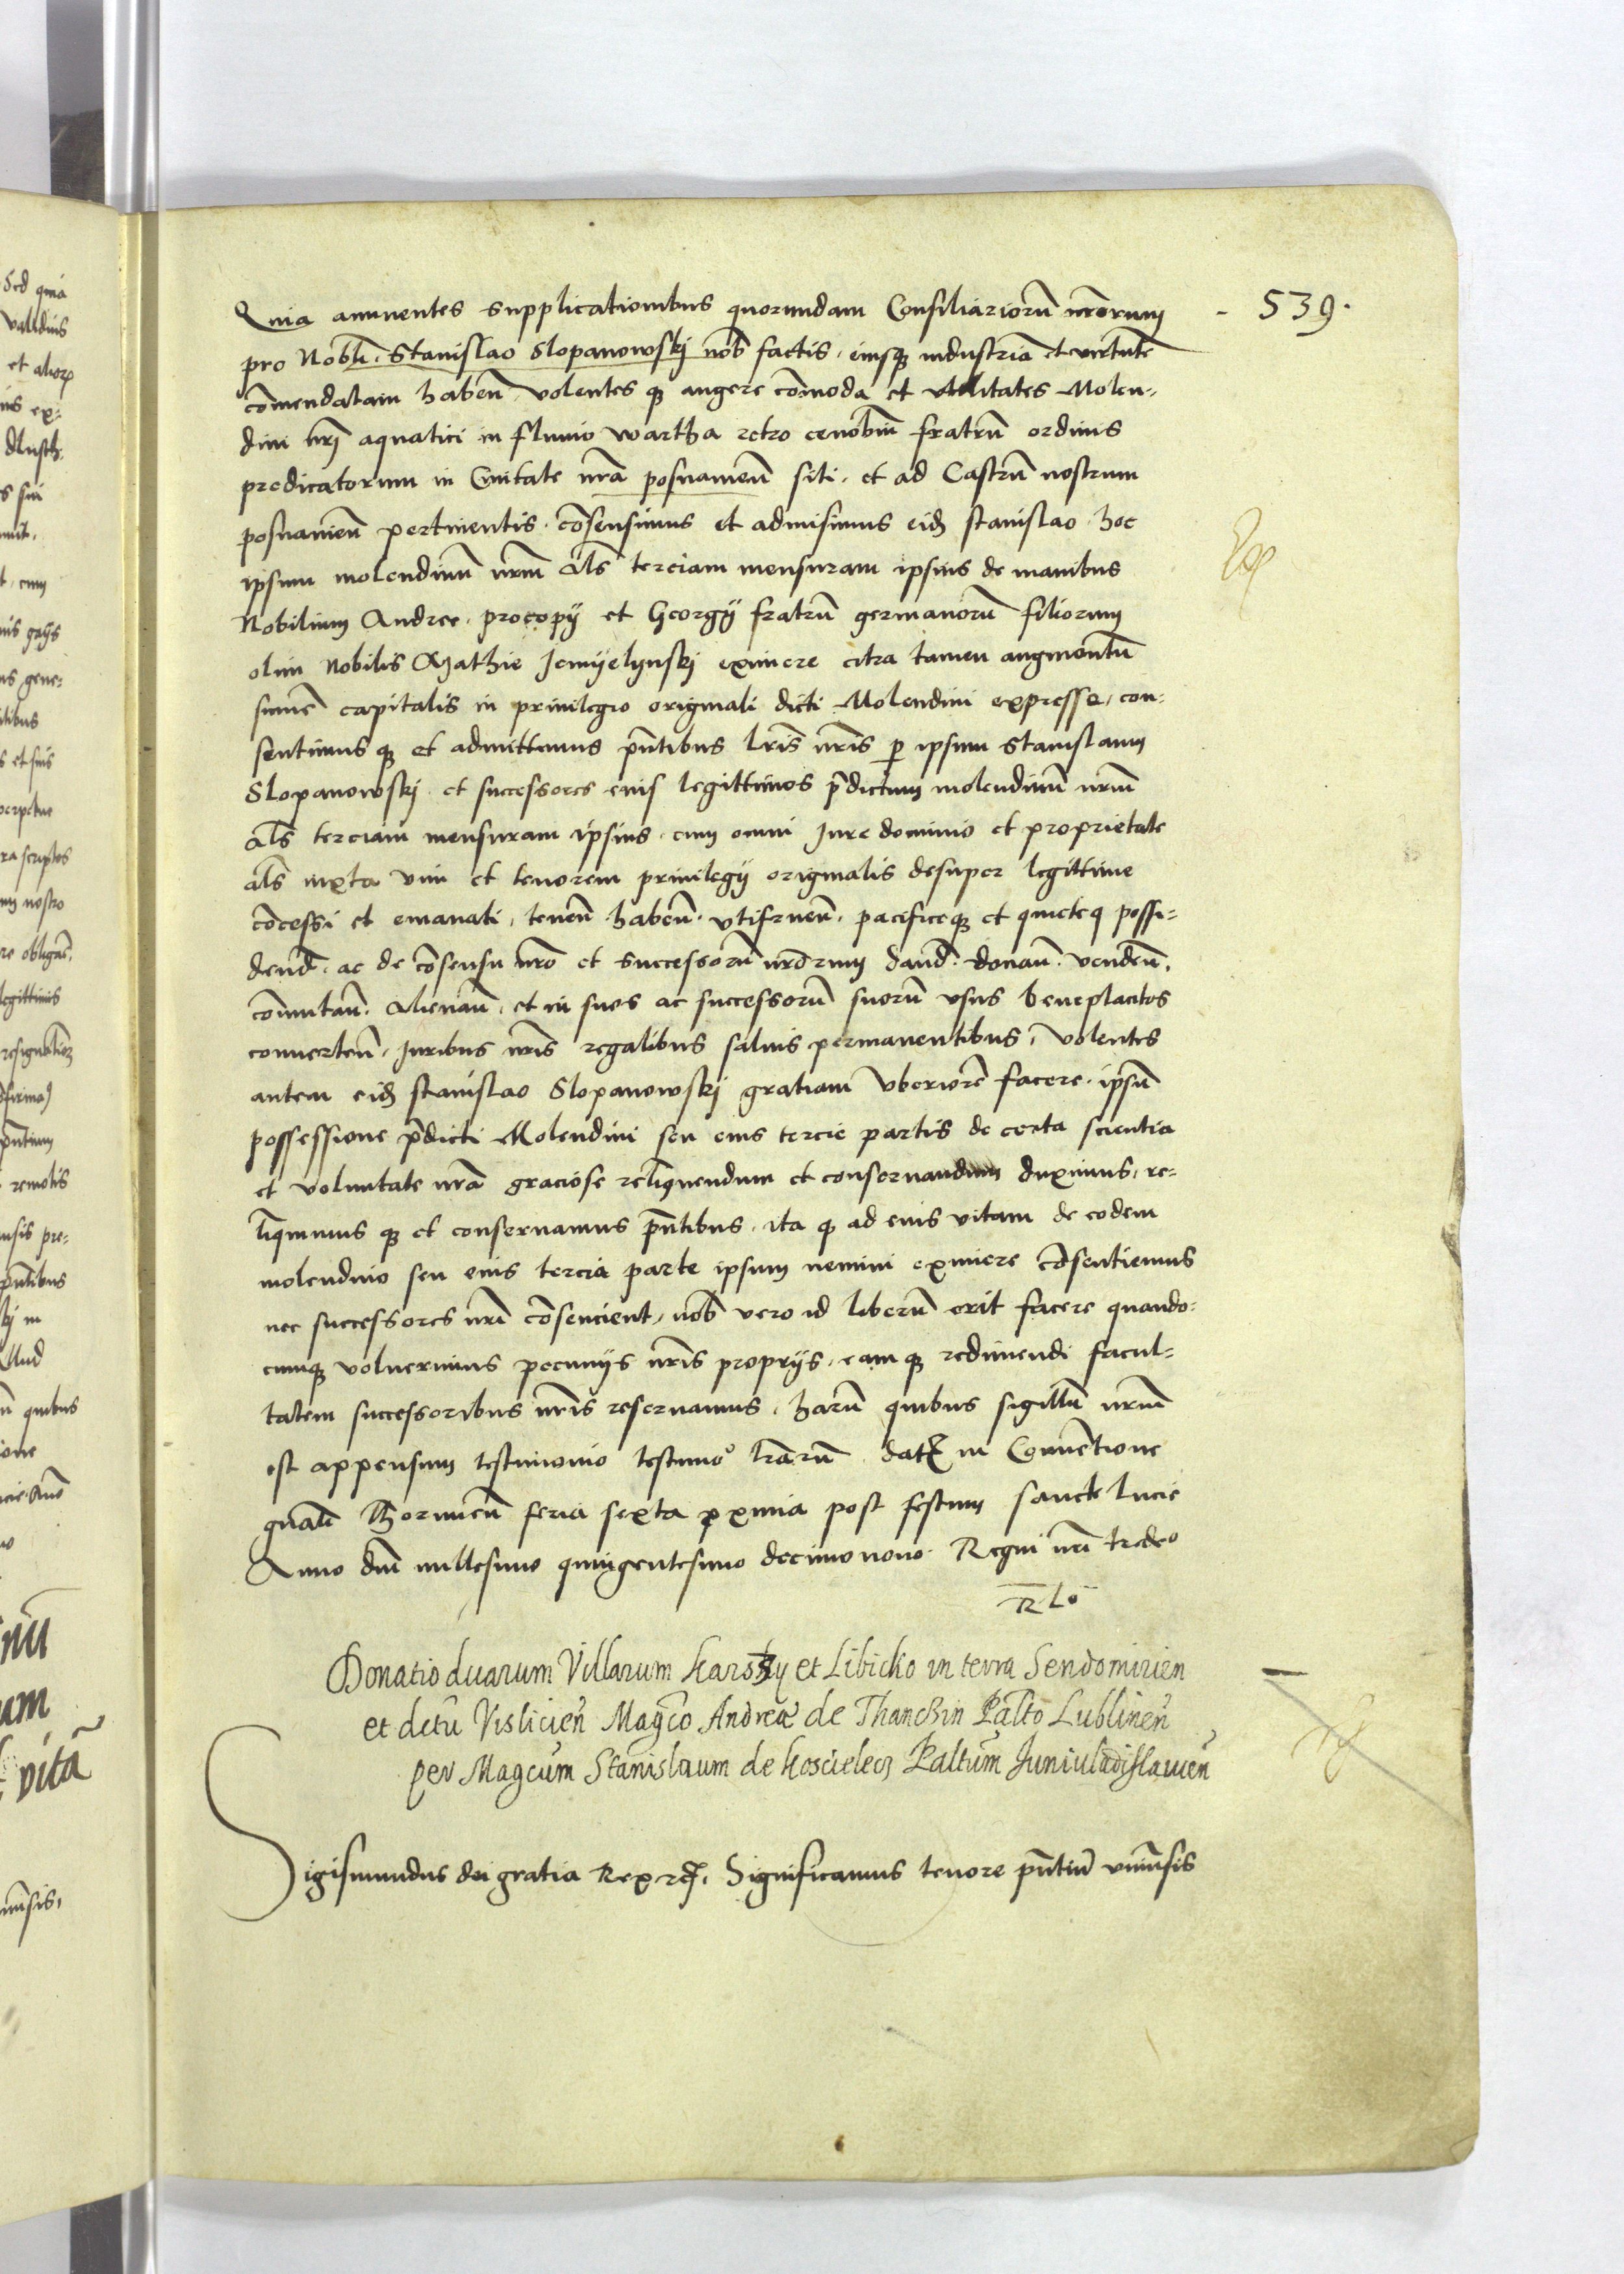 539.
Quia annuentes supplicationibus quorundam Consiliariorū nr̄orum
pro Nobli. Stanislao Slopanowskj nob̄ factis, eiusq̨ industriā et virtutē
cōmendatam haben̄ volentes q̨ augere cōmoda et vtilitates Molen-
dini nr̄j aquatici in fluuio wartha retro cenobiū fratrū ordinis
predicatorum in Ciuitate nr̄a posnanien̄ siti, et ad Castrū nostrum
posnanien̄ pertinentis, cōsensimus et admisimus eidȝ stanislao hoc
ipsum molendinū nr̄m al̄s terciam mensuram ipsius de manibus
Nobilium Andree, procopij et Georgij fratrū germanorū filiorum
olim Nobilis Mathie Jemyelynskj eximere citra tamen augmentū
sume capitalis in priuilegio originali dicti Molendini expresse, con-
sentimus q̨ et admittimus pn̄tibus lr̄is nr̄is ꝑ ipsum Stanislaum
Slopanowskj et successores eius legittimos p̄dictum molendinū nr̄m
al̄s terciam mensuram ipsius, cum omni Jure dominio et proprietate
al̄s iuxta vim et tenorem priuilegij originalis desuper legittime
cōcessi et emanati, tenen̄ haben̄ vtifruen̄, pacificeq̨ et quieteq̨ possi-
dend̄, ac de cōsensu nr̄o et successorū nr̄orum dand̄, donan̄, venden̄,
cōmutan̄, Alienan̄, et in suos ac successorū suorū vsus beneplacitos
conuerten̄, Juribus nr̄is regalibus saluis permanentibus, volentes
autem eidȝ stanislao Slopanowskj gratiam vberiorē facere, ipsū
possessione p̄dicti Molendini seu eius tercie partis de certa scientia
et voluntate nr̄a graciose reliquendum et conseruandum duximus, re-
liquimus q̨ et conseruamus pn̄tibus, ita q̨ ad eius vitam de eodem
molendino seu eius tercia parte ipsum nemini eximere cōsentiemus
nec successores nr̄i cōsencient, nob̄ vero id liberū erit facere quando-
cumq̨ voluerimus pecunijs nr̄is proprijs, eam q̨ redimendi facul-
tatem successoribus nr̄is reseruamus, harū quibus sigillū nr̄m
est appensum testimonio testimo lr̄arū. dat̄ in Conuētione
gn̄ali Thorunien̄ feria sexta ꝓxima post festum sancte lucie
Anno dn̄i millesimo quingentesimo decimo nono. Regni nr̄i tredeo
R Lo
Donatio duarum Villarum Karssy et Libicko in terra Sendomirien
et dctū Vislicien̄ Magco Andreæ de Thanchin Palto Lublinen̄
per Magcum Stanislaum de Koscielecz Paltum Juniuladislauien̄
Sigismundus dei gratia Rex ⁊cȝ. Significamus tenore pn̄tiū vniūsis